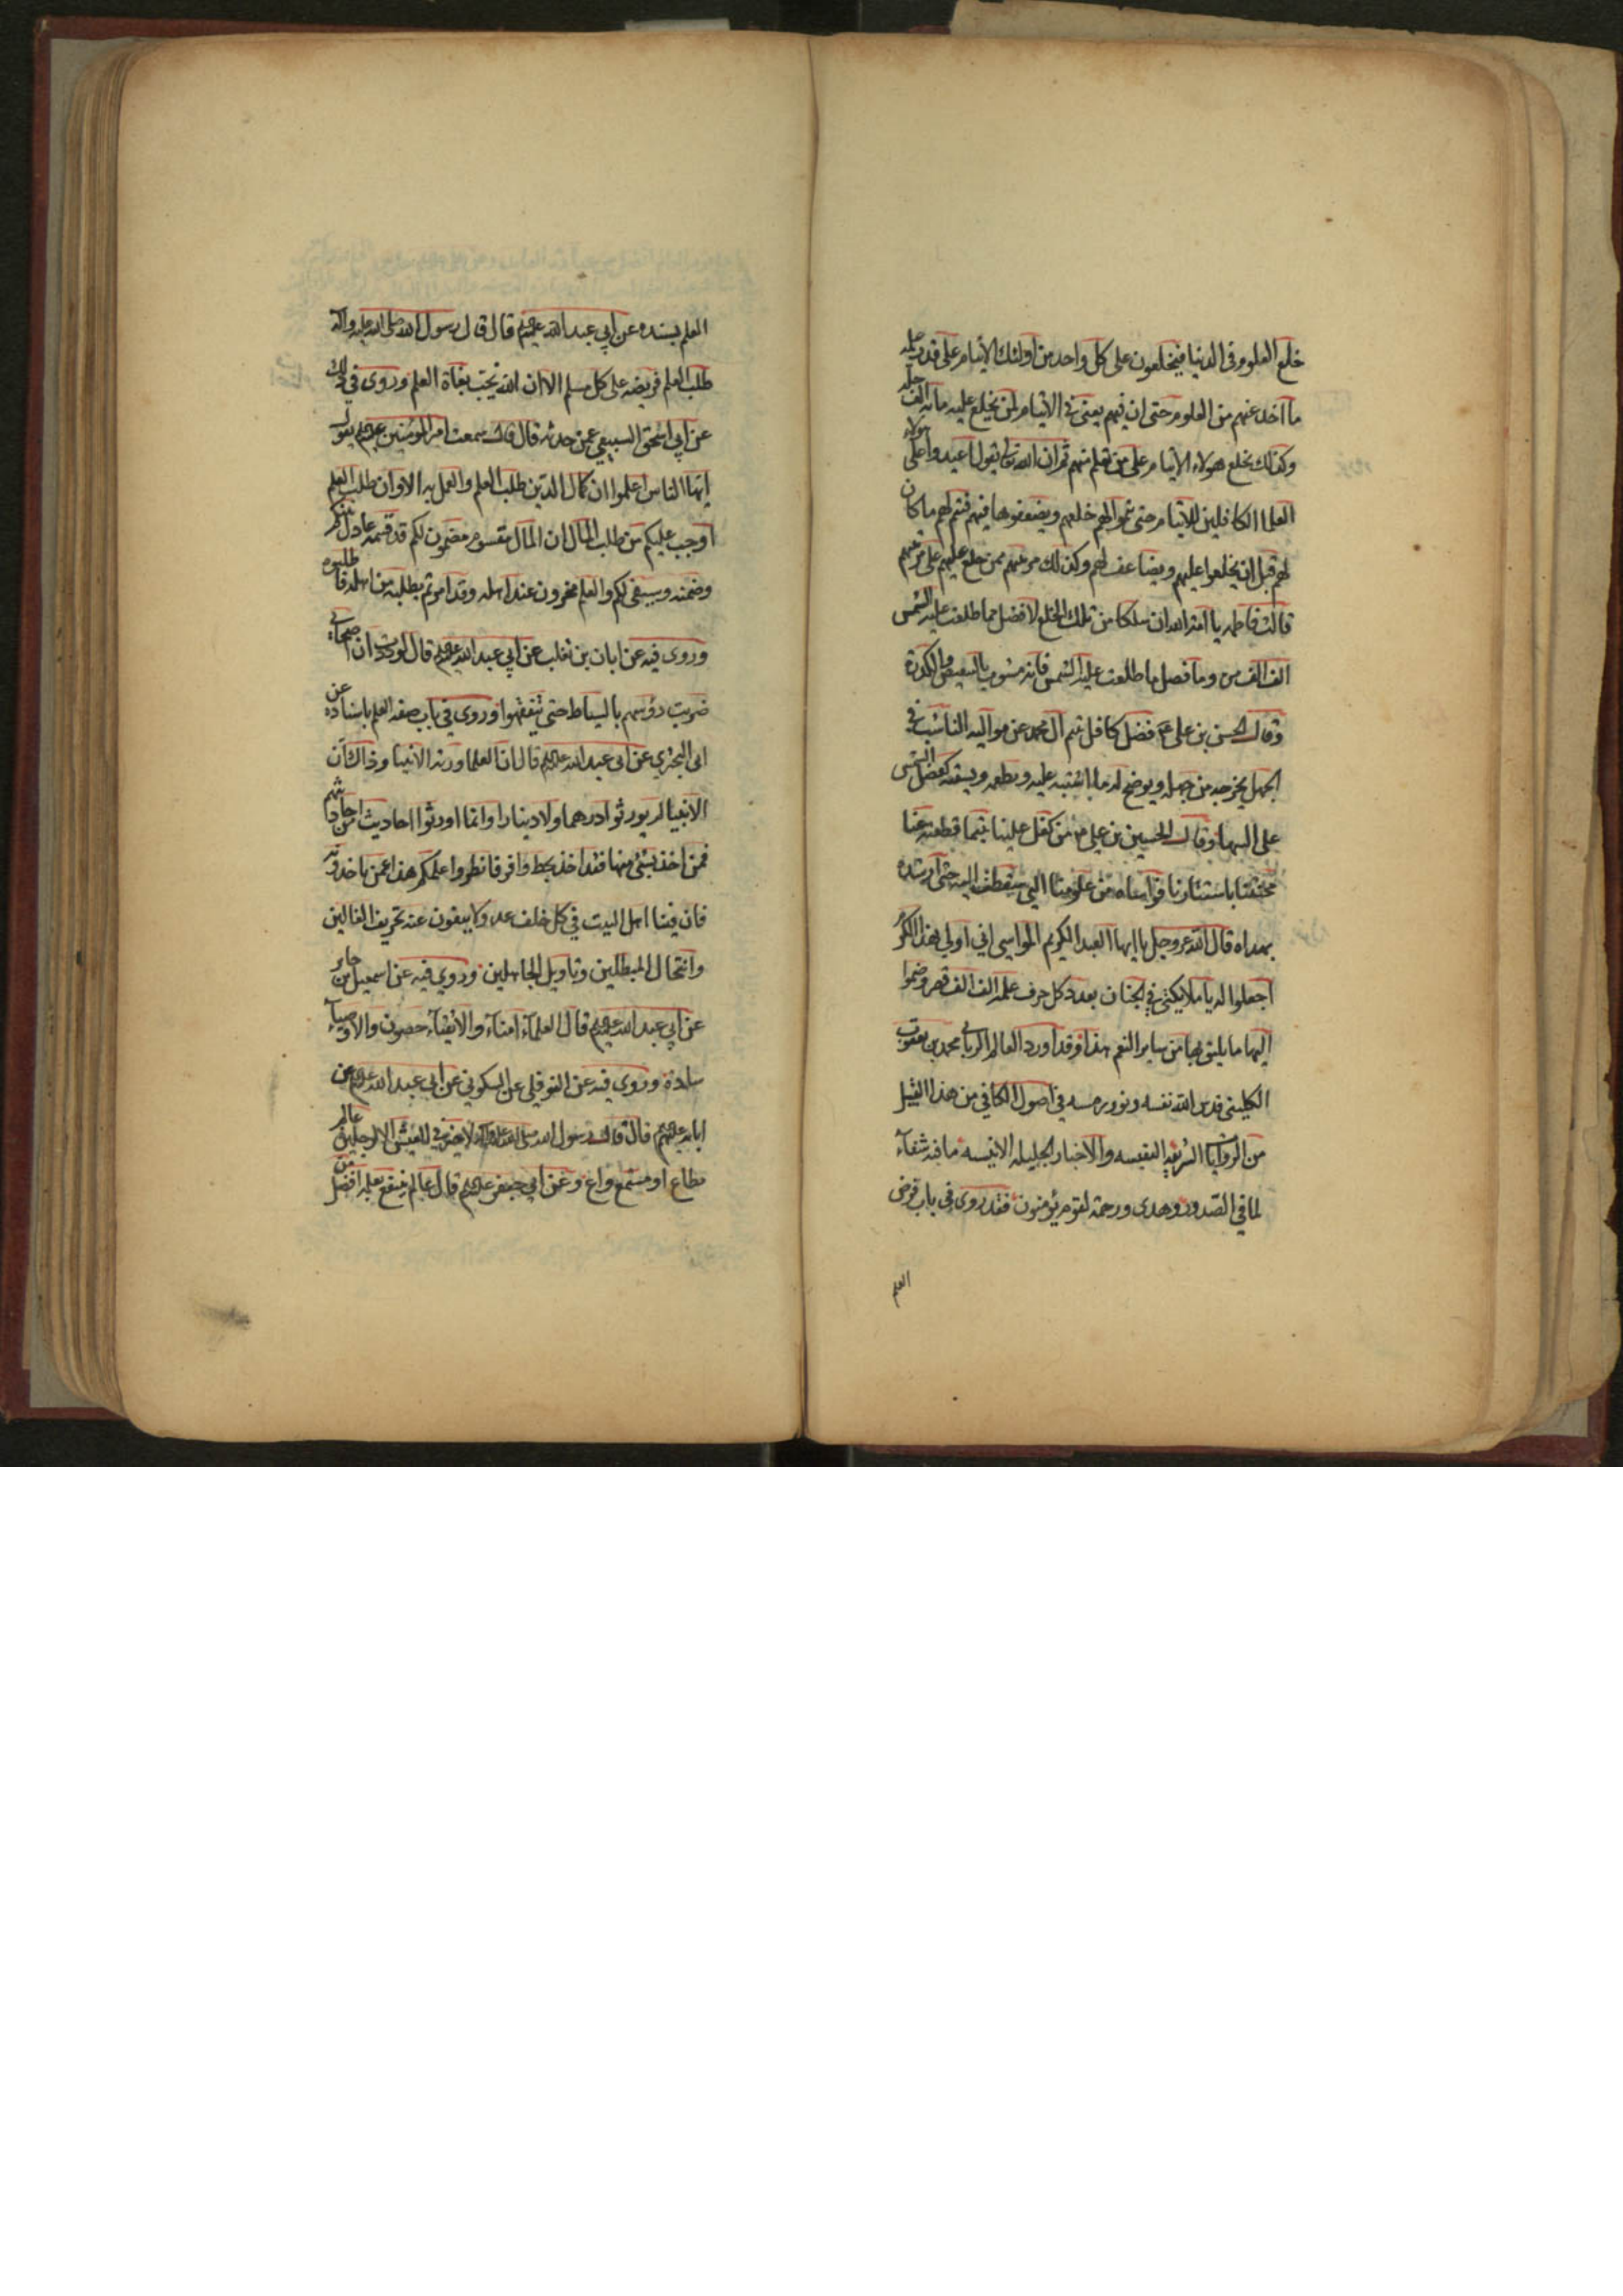 خلع العلوم في الدنيا فيخلعون على كل واحد من اولئك الايتام على قدر
ما اخذ عنهم من العلوم حتى ان فيهم يعنى في الايتام لمن يخلع عليه ماية الف حلة
وكذلك يخلع هولاء الايتام على من تعلم منهم ثم ان الله تعالى يقول اعيدوا على هولاء
العلما الكافلين للايتام حتى تتموا لهم خلعهم ويضعفوها فيهم فيتم لهم ما كان
لهم قبل ان يخلعوا عليهم ويضاعف لهم وكذلك مرتبتهم ممن خلع عليهم على مرتبتهم
قالت فاطمه يا امة الله ان سلكا من تلك الخلع لافضل مما طلعت عليه الشمس
الف الف مرة وما فضل ما طلعت عليه الشمس فانه مشوب بالتنغيص والكدورة
وقال الحسن بن على ع فضل كافل يتيم ال محمد عن مواليه الناشب في
الجهل يخرجه من جهله ويوضح له ما اشتبه عليه ويطعمه ويسقيه كفضل الشمس
على السها وقال الحسين بن علي من كفل علينا يتيما قطعته عنا
محنتنا باستتارنا فواساه من علومنا التي سقطت اليه حتى ارشده
بهداه قال الله عز وجل يا ايها العبد الكريم المواسي اني اولى بهذا الكرم
اجعلوا له يا ملايكتي في الجنان بعدد كل حرف علمه الف الف قصر وضموا
اليها ما يليق بها من ساير النعم هذا وقد اورد العالم الرباني محمد بن يعقوب
الكليني قدس الله نفسه ونور رمسه في اصول الكافي من هذا القبيل
من الروايات الشريفة النفيسه والاخبار الجليله الانيسه ما فيه شفاء
لما في الصدور وهدى ورحمة لقوم يؤمنون فقد روى في باب فرض
العلم
العلم بسنده عن ابي عبد الله عليه السلم قال قال رسول الله صلى الله عليه واله
طلب العلم فريضه على كل مسلم الا ان الله يحب بغاة العلم وروى في ذلك
عن ابي اسحق السبيعي عمن حدثه قال قال سمعت امير المؤمنين عليه السلم يقول
ايها الناس اعلموا ان كمال الدين طلب العلم والعمل به الا وان طلب العلم
اوجب عليكم من طلب المال ان المال مقسوم مضمون لكم قد قسمه عادل بينكم
وضمنه وسيفى لكم والعلم مخزون عند اهله وقد امرتم بطلبه من اهله فاطلبوه
وروى فيه عن ابان بن تغلب عن ابي عبد الله عليه السلم قال لوددت ان اصحابي
ضربت رؤسهم بالسياط حتى يتفقهوا وروى في باب صفه العلم باسناده عن
ابي البختري عن ابي عبد الله عليه السلم قال ان العلما ورثة الانبيا وذاك ان
الانبيا لم يورثوا درهما ولا دينارا وانما اورثوا احاديث من احاديثهم
فمن اخذ بشئ منها فقد اخذ بحظ وافر فانظروا علمكم هذا عمن تاخذونه
فان فينا اهل البيت في كل خلف عدولا ينفون عنه تحريف الغالين
وانتحال المبطلين وتاويل الجاهلين وروي فيه عن اسمعيل بن جابر
عن ابي عبد الله عليه السلم قال العلماء امناء والاتقياء حصون والاوصياء
سادة وروى فيه عن النوفلي عن السكوني عن ابي عبد الله عليه السلم عن
ابائه عليهم السلم قال قال رسول الله صلى الله عليه واله لا خير في العيش الا لرجلين عالم
مطاع او مستمع واع وعن ابي جعفر عليه السلم قال عالم ينتفع بعلمه افضل من